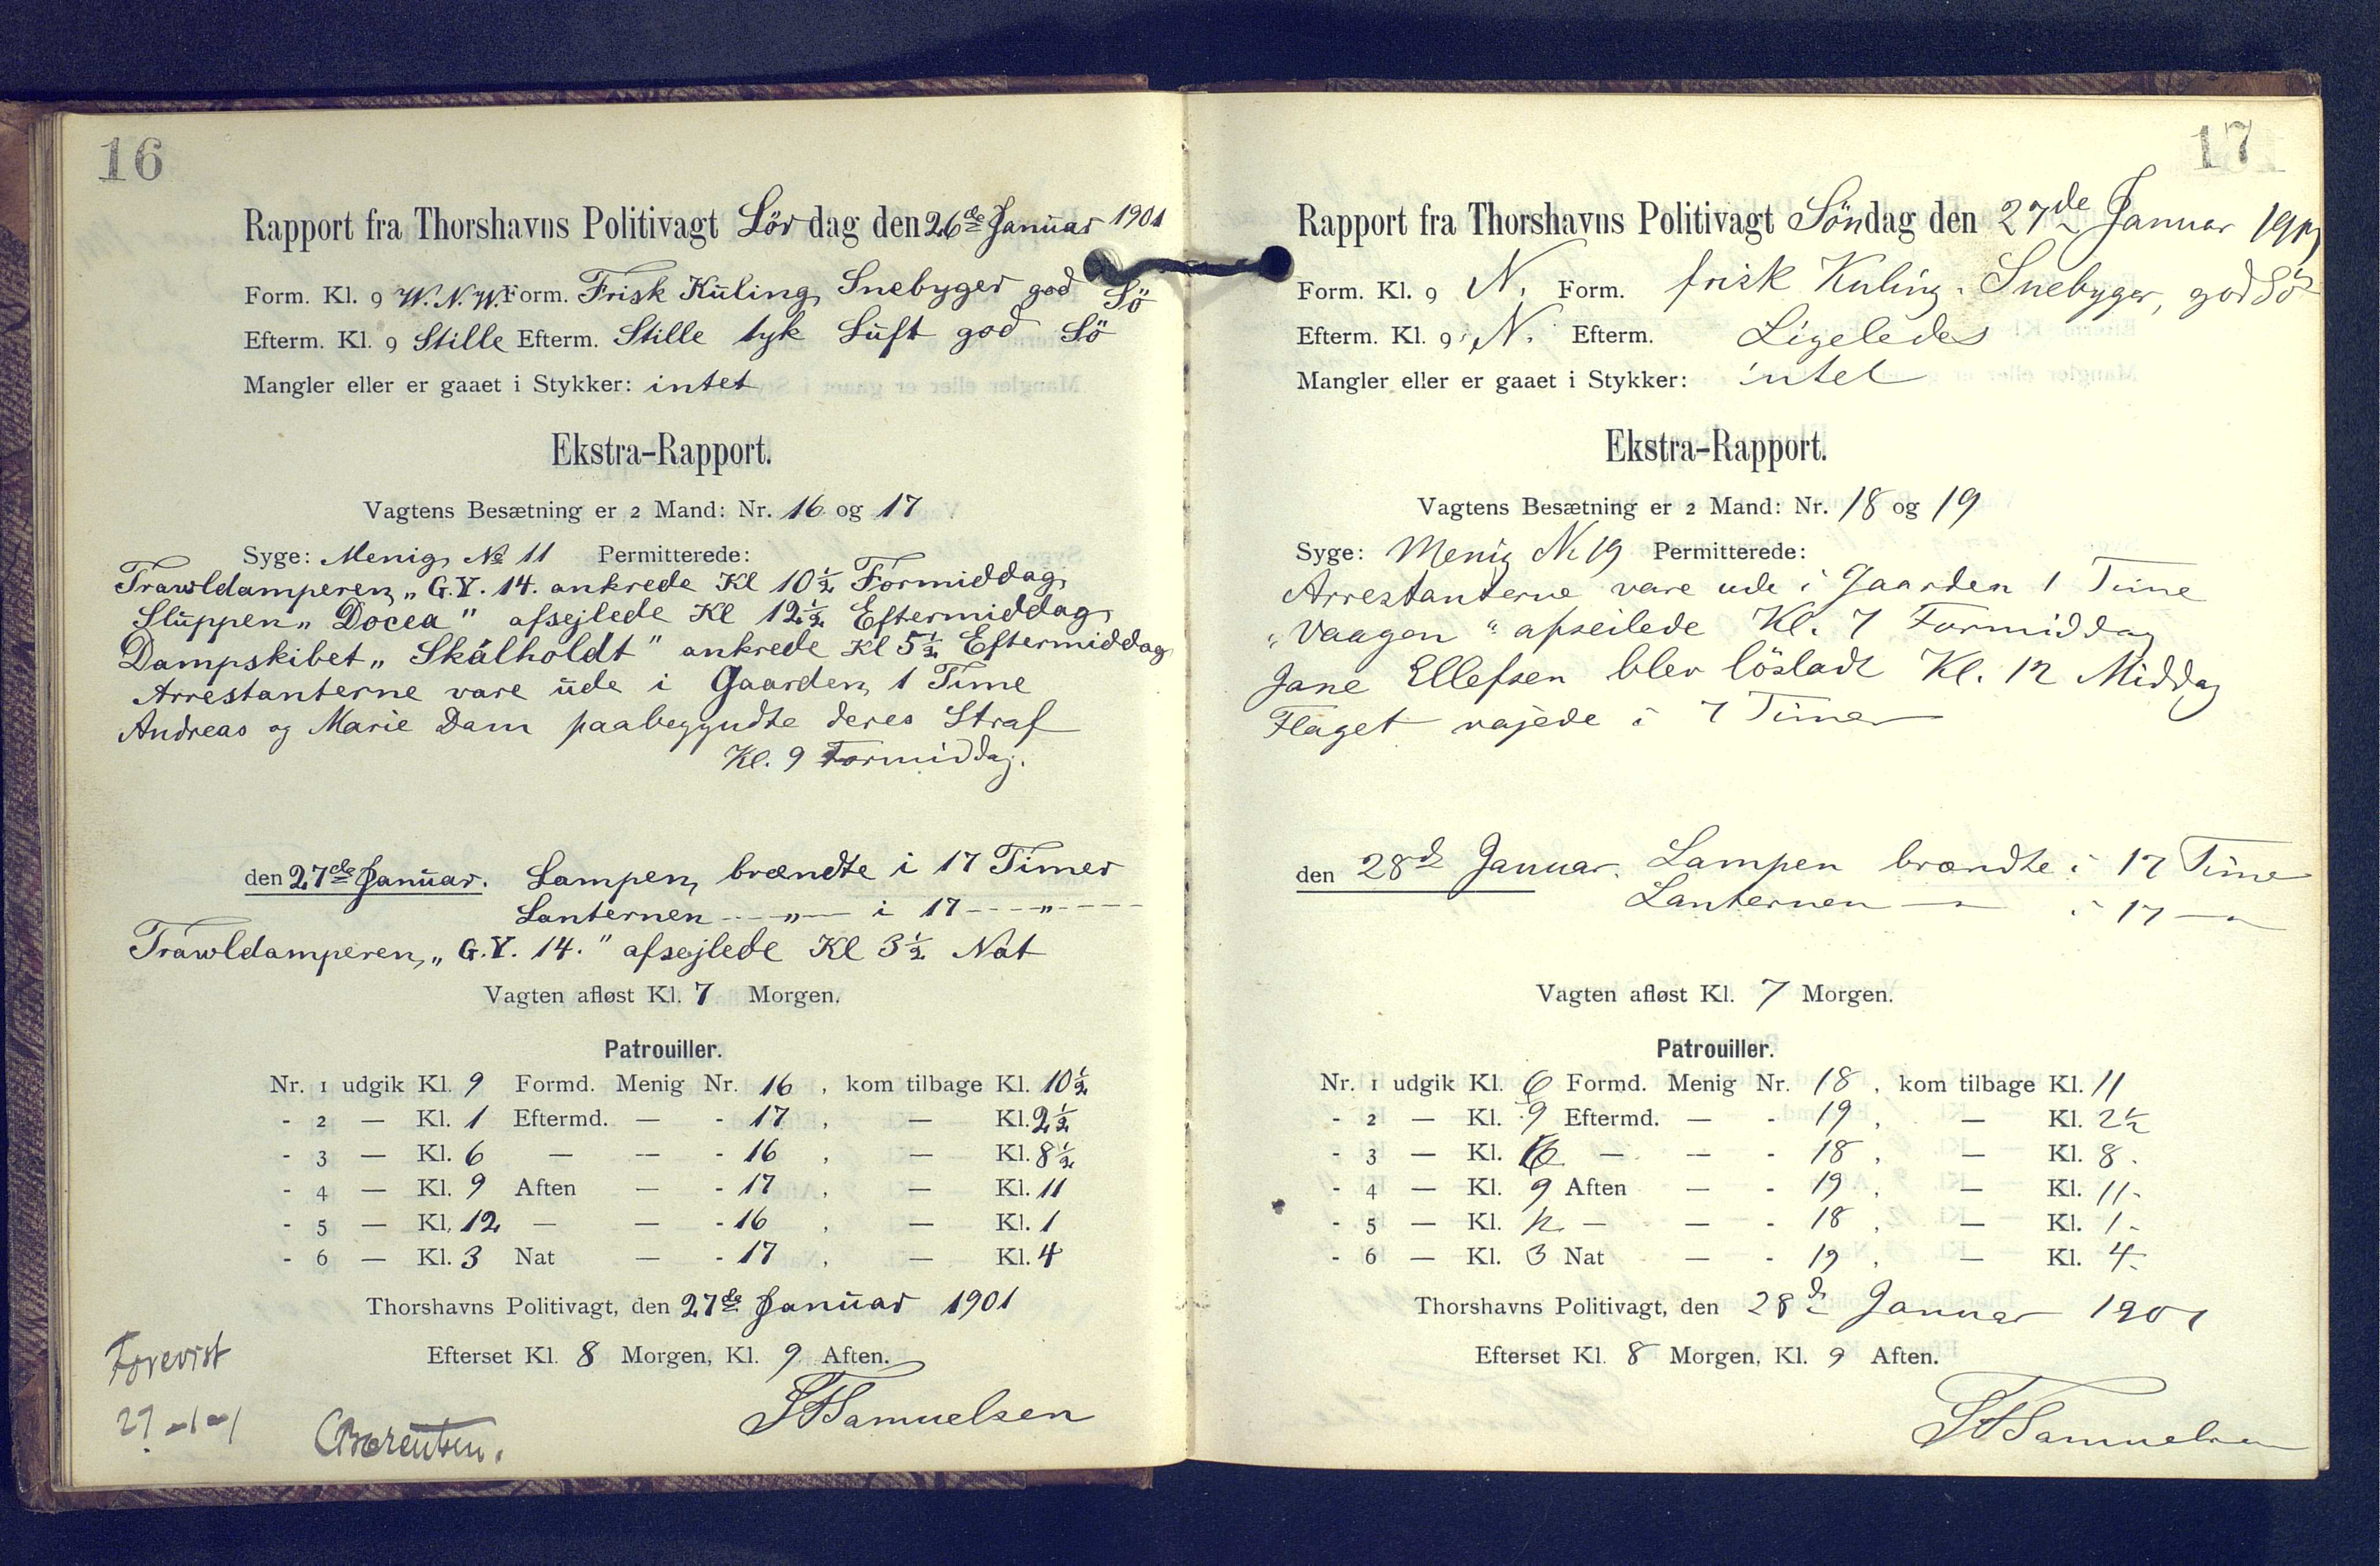 16
Rapport fra Thorshavns Politivagt Lördag den 26de Januar 1901
Form. Kl. 9 W.N.W. Form. Frisk Kuling, Snebyger god Sö
Efterm. Kl. 9 Stille Efterm. Stille tyk Luft god Sö
Mangler eller er gaaet i Stykker: intet
Ekstra-Rapport.
Vagtens Besætning er 2 Mand: Nr. 16 og 17
Syge: Menig No 11 Permitterede:
Trawldamperen „G.Y. 14. ankrede Kl 10½ Formiddag
Sluppen „Docea" afsejlede Kl 12½ Eftermiddag
Dampskibet „Skálholdt" ankrede Kl 5½ Eftermiddag
Arrestanterne vare ude i Gaarden 1 Time
Andreas og Marie Dam paabegyndte deres Straf
Kl. 9 Formiddag.
den 27de Januar. Lampen brændte i 17 Timer
Lanternen ---„--- i 17 ---„---
Trawldamperen „G.Y. 14." afsejlede Kl 3½ Nat
Vagten afløst Kl. 7 Morgen.
Patrouiller.
Nr. 1 udgik Kl. 9 Formd. Menig Nr. 16, kom tilbage Kl. 10½
- 2 — Kl. 1 Eftermd. — - 17, — Kl. 2½
- 3 — Kl. 6 — — - 16, — Kl. 8½
- 4 — Kl. 9 Aften — - 17, — Kl. 11
- 5 — Kl. 12 — — - 16, — Kl. 1
- 6 — Kl. 3 Nat — - 17, — Kl. 4
Thorshavns Politivagt, den 27de Januar 1901
Efterset Kl. 8 Morgen, Kl. 9 Aften.
Forevist
27-1-1
Samuelsen
17
Rapport fra Thorshavns Politivagt Söndag den 27de Januar 1901
Form. Kl. 9 N. Form. frisk Kuling. Snebyger, god Sö
Efterm. Kl. 9 N. Efterm. Ligeledes
Mangler eller er gaaet i Stykker: intet
Ekstra-Rapport.
Vagtens Besætning er 2 Mand: Nr. 18 og 19
Syge: Menig N. 19 Permitterede:
Arrestanterne vare ude i Gaarden 1 Time
„Vaagen" afseilede Kl. 7 Formiddag
Jane Ellefsen blev lösladt Kl. 12 Middag
Flaget vajede i 7 Timer
den 28de Januar. Lampen brændte i 17 Time
Lanternen — „ i 17 — „
Vagten afløst Kl. 7 Morgen.
Patrouiller.
Nr. 1 udgik Kl. Formd. Menig Nr. 18, kom tilbage Kl. 11
- 2 — Kl. 9 Eftermd. — - 19, — Kl. 2½
- 3 — Kl. — — - 18, — Kl. 8.
- 4 — Kl. 9 Aften — - 19, — Kl. 11-
- 5 — Kl. 12 — — - 18, — Kl. 1-
- 6 — Kl. 3 Nat — - 19, — Kl. 4-
Thorshavns Politivagt, den 28de Januar 1901
Efterset Kl. 8 Morgen, Kl. 9 Aften.
Samuelsen